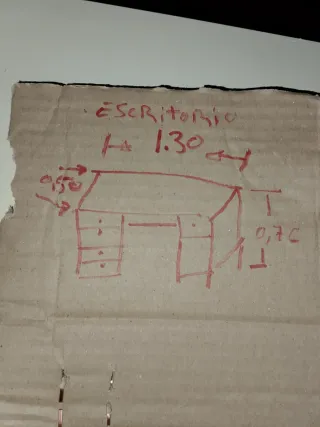 ESCRITORIO
1.30
0,50
0,76